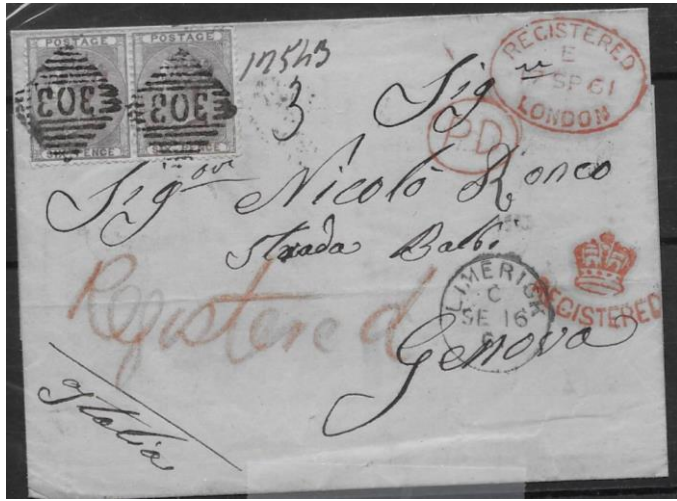 POSTAGE POSTAGE
303 303
SIX PENCE SIX PENCE
REGISTERED
E
SP 61
LONDON
PD
Sig
Sig Nicolò Ronco
Strada Balbi
Registered
LIMERICK
C
SE 16
REGISTERED
Genova
Italia